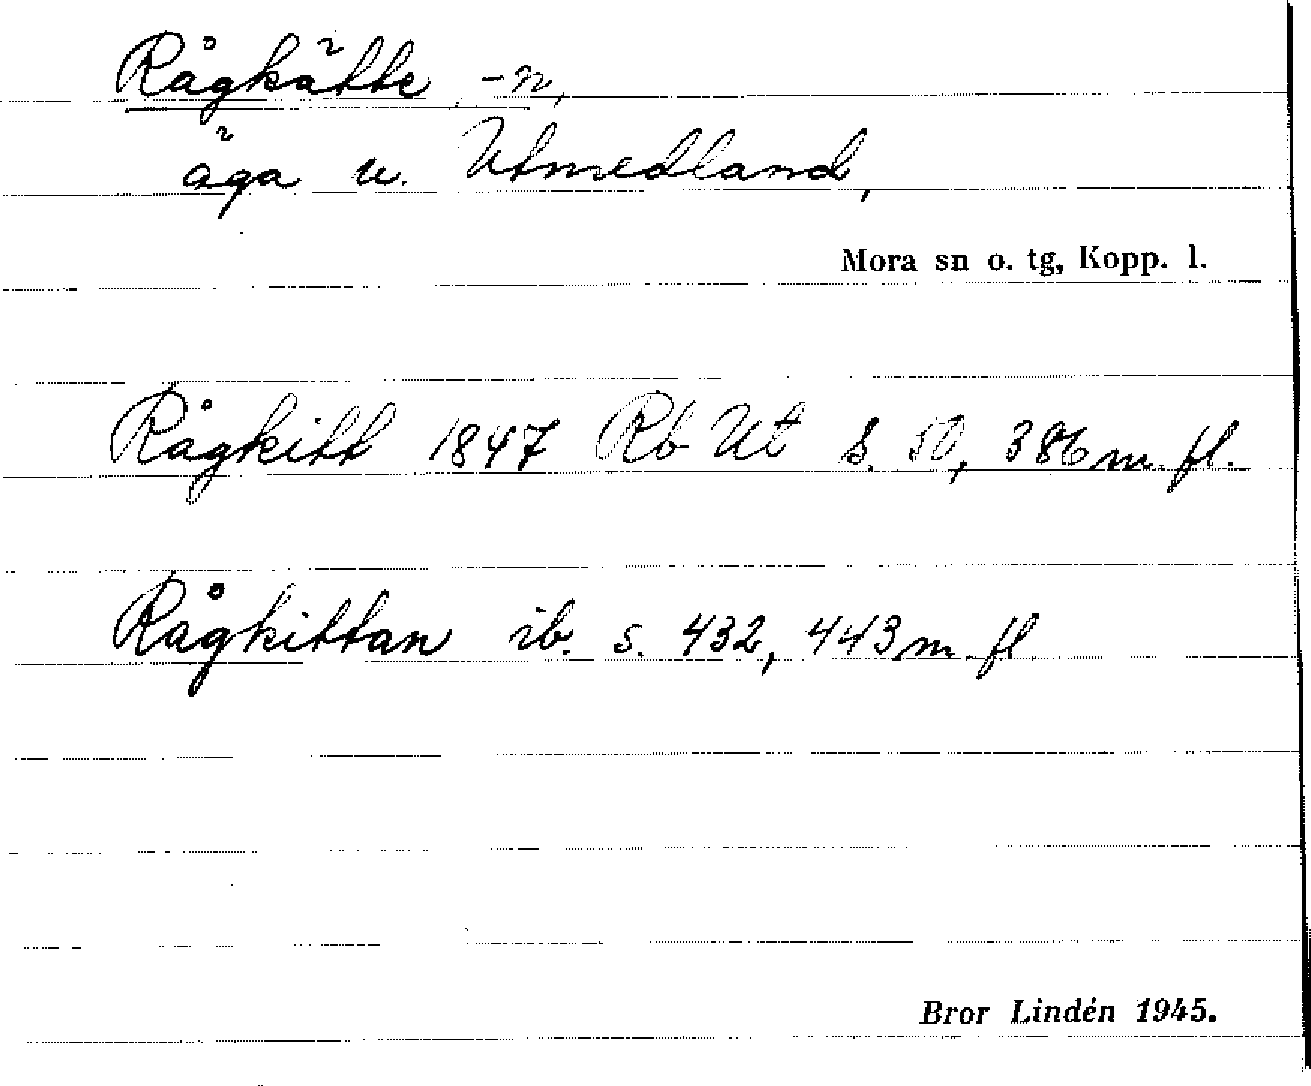 Rågkätte, -n,
äga u. Utmedland,
Mora sn o. tg, Kopp. l.
Rågkitt 1847 Rb Ut s. 50, 386 m. fl.
Rågkittan ib. s. 432, 443 m. fl
Bror Lindén 1945.